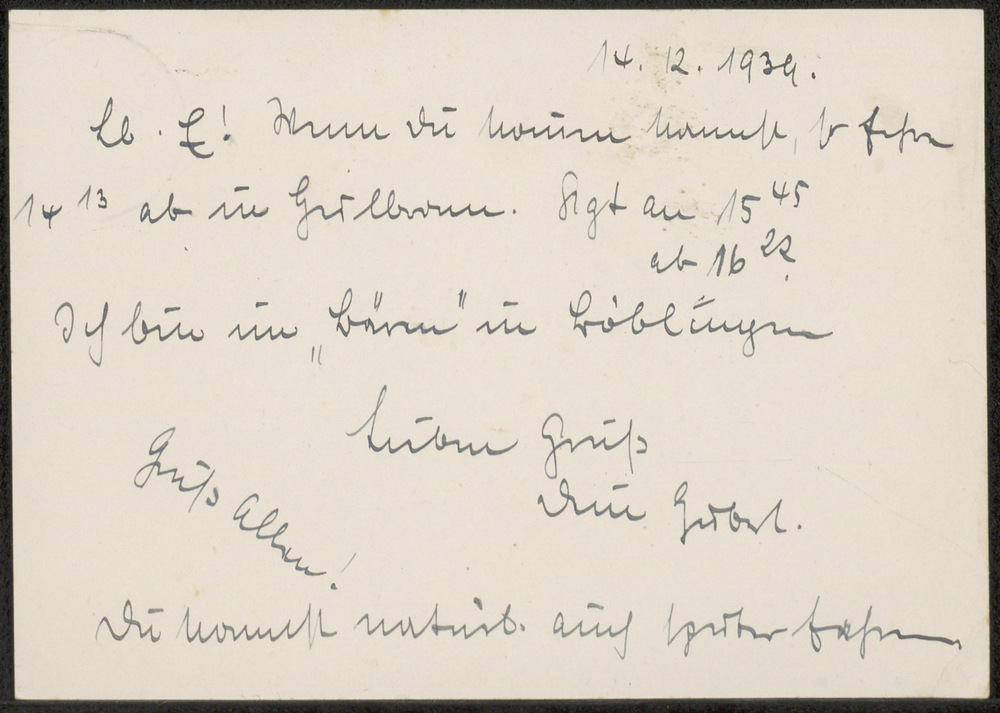 14. 12. 1939.
Lb. E! Wenn du kommen kannst, so fahre
14 13 ab in Heilbronn. Stgt an 15 45
ab 16 22
Ich bin im „Bären" in Böblingen
Lieben Gruß
Dein
Gruß Allen!
Du kannst natürl. auch später fahren